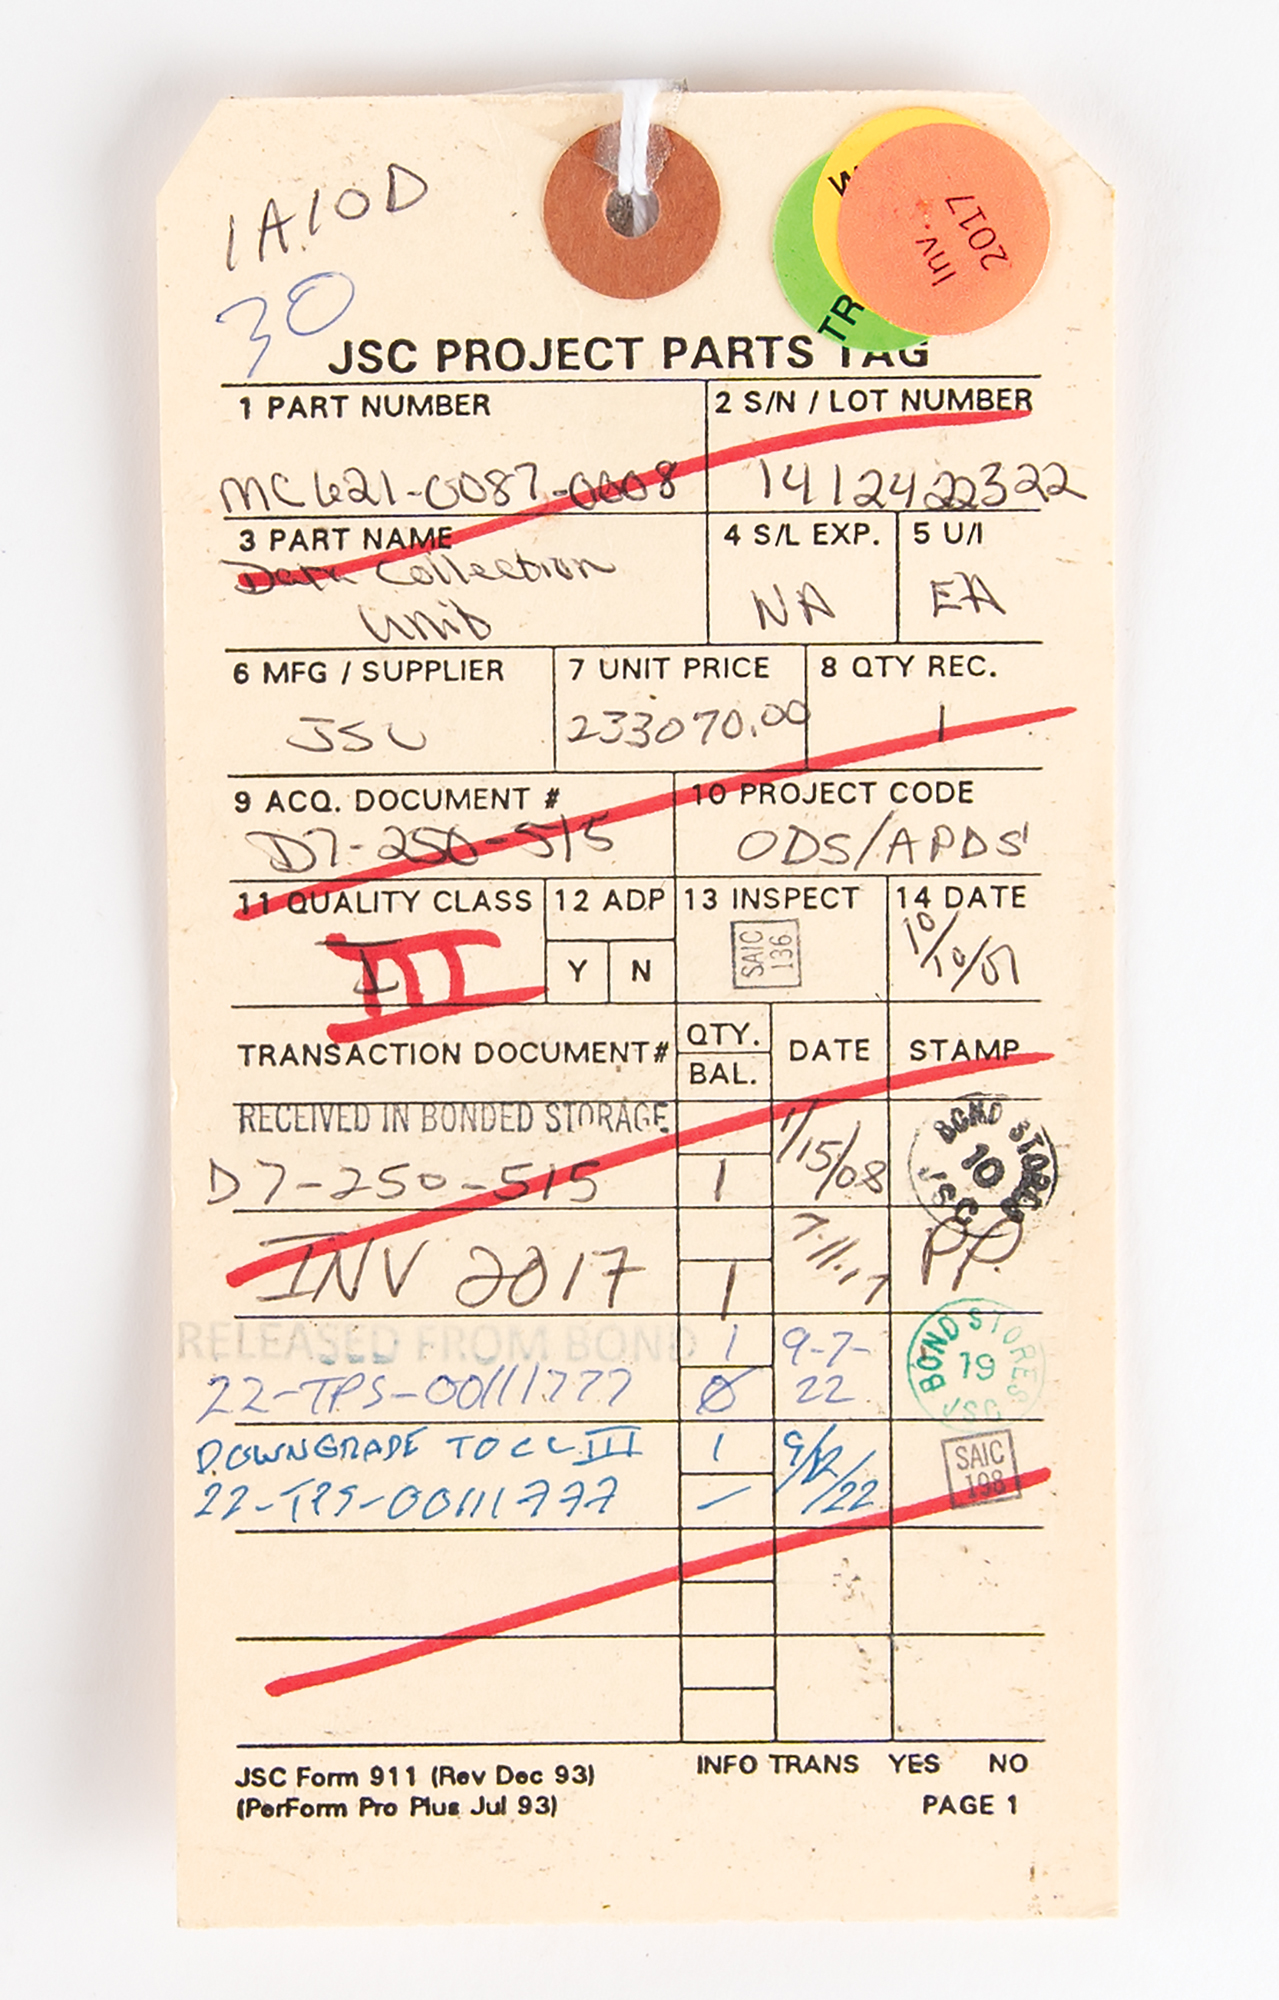 1A10D
30
TR
Inv.
2017
JSC PROJECT PARTS TAG
1 PART NUMBER
2 S/N / LOT NUMBER
MC621-0087-0008
1412422322
3 PART NAME
4 S/L EXP.
5 U/I
Data Collection
Unit
NA
EA
6 MFG / SUPPLIER
7 UNIT PRICE
8 QTY REC.
JSC
233070.00
1
9 ACQ. DOCUMENT #
10 PROJECT CODE
D7-250-515
ODS/APDS
11 QUALITY CLASS
12 ADP
13 INSPECT
14 DATE
III
Y
N
SAIC
136
10/10/07
TRANSACTION DOCUMENT#
QTY.
BAL.
DATE
STAMP
RECEIVED IN BONDED STORAGE
D7-250-515
1
1/15/08
BOND STORES
10
JSC
INV 2017
1
7.11.17
PP.
RELEASED FROM BOND
22-TPS-00111777
1
Ø
9-7-
22
BOND STORES
19
JSC
DOWNGRADE TO CL III
22-TPS-00111777
1
–
9/12/22
SAIC
198
JSC Form 911 (Rev Dec 93)
(PerForm Pro Plus Jul 93)
INFO TRANS YES NO
PAGE 1